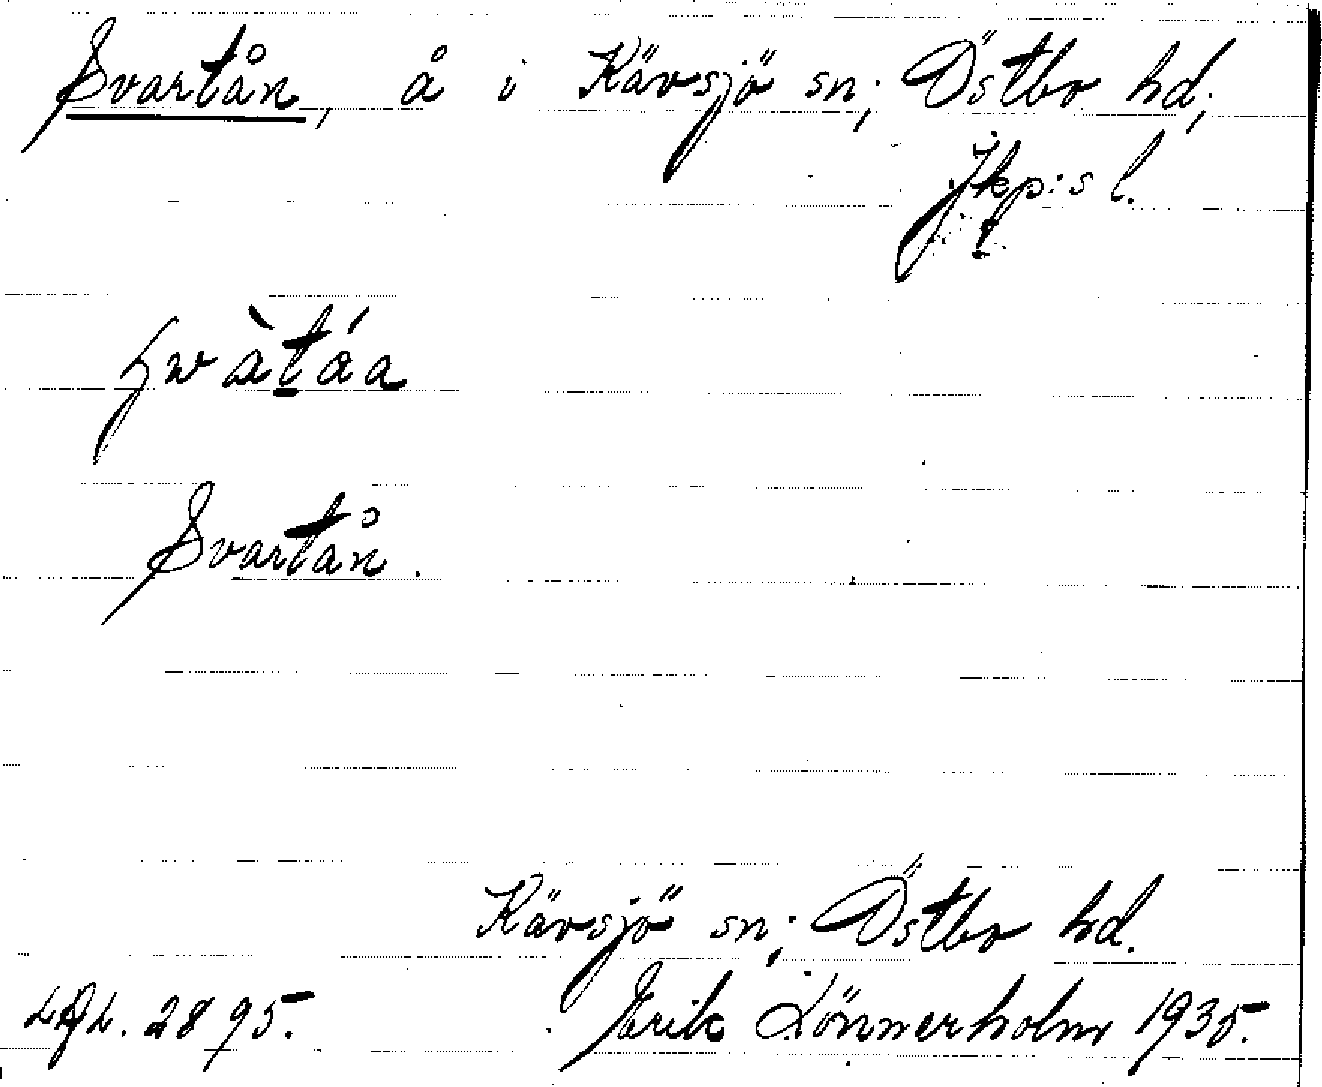 Svartån, å i Kävsjö sn; Östbo hd;
Jkp:s l.
Svartån.
Kävsjö sn; Östbo hd.
2895. Erik Lönnerholm 1935.